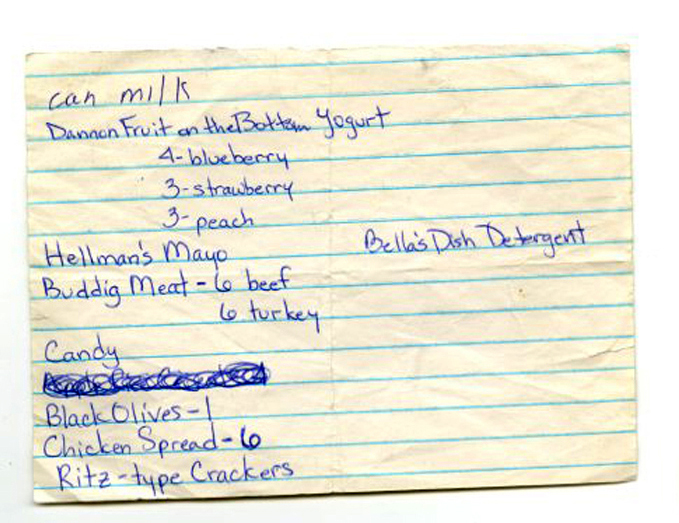 can milk
Dannon Fruit on the Bottom Yogurt
4-blueberry
3-strawberry
3-peach
Hellman's Mayo
Bella's Dish Detergent
Buddig Meat - 6 beef
6 turkey
Candy
Black Olives - 1
Chicken Spread - 6
Ritz-type Crackers